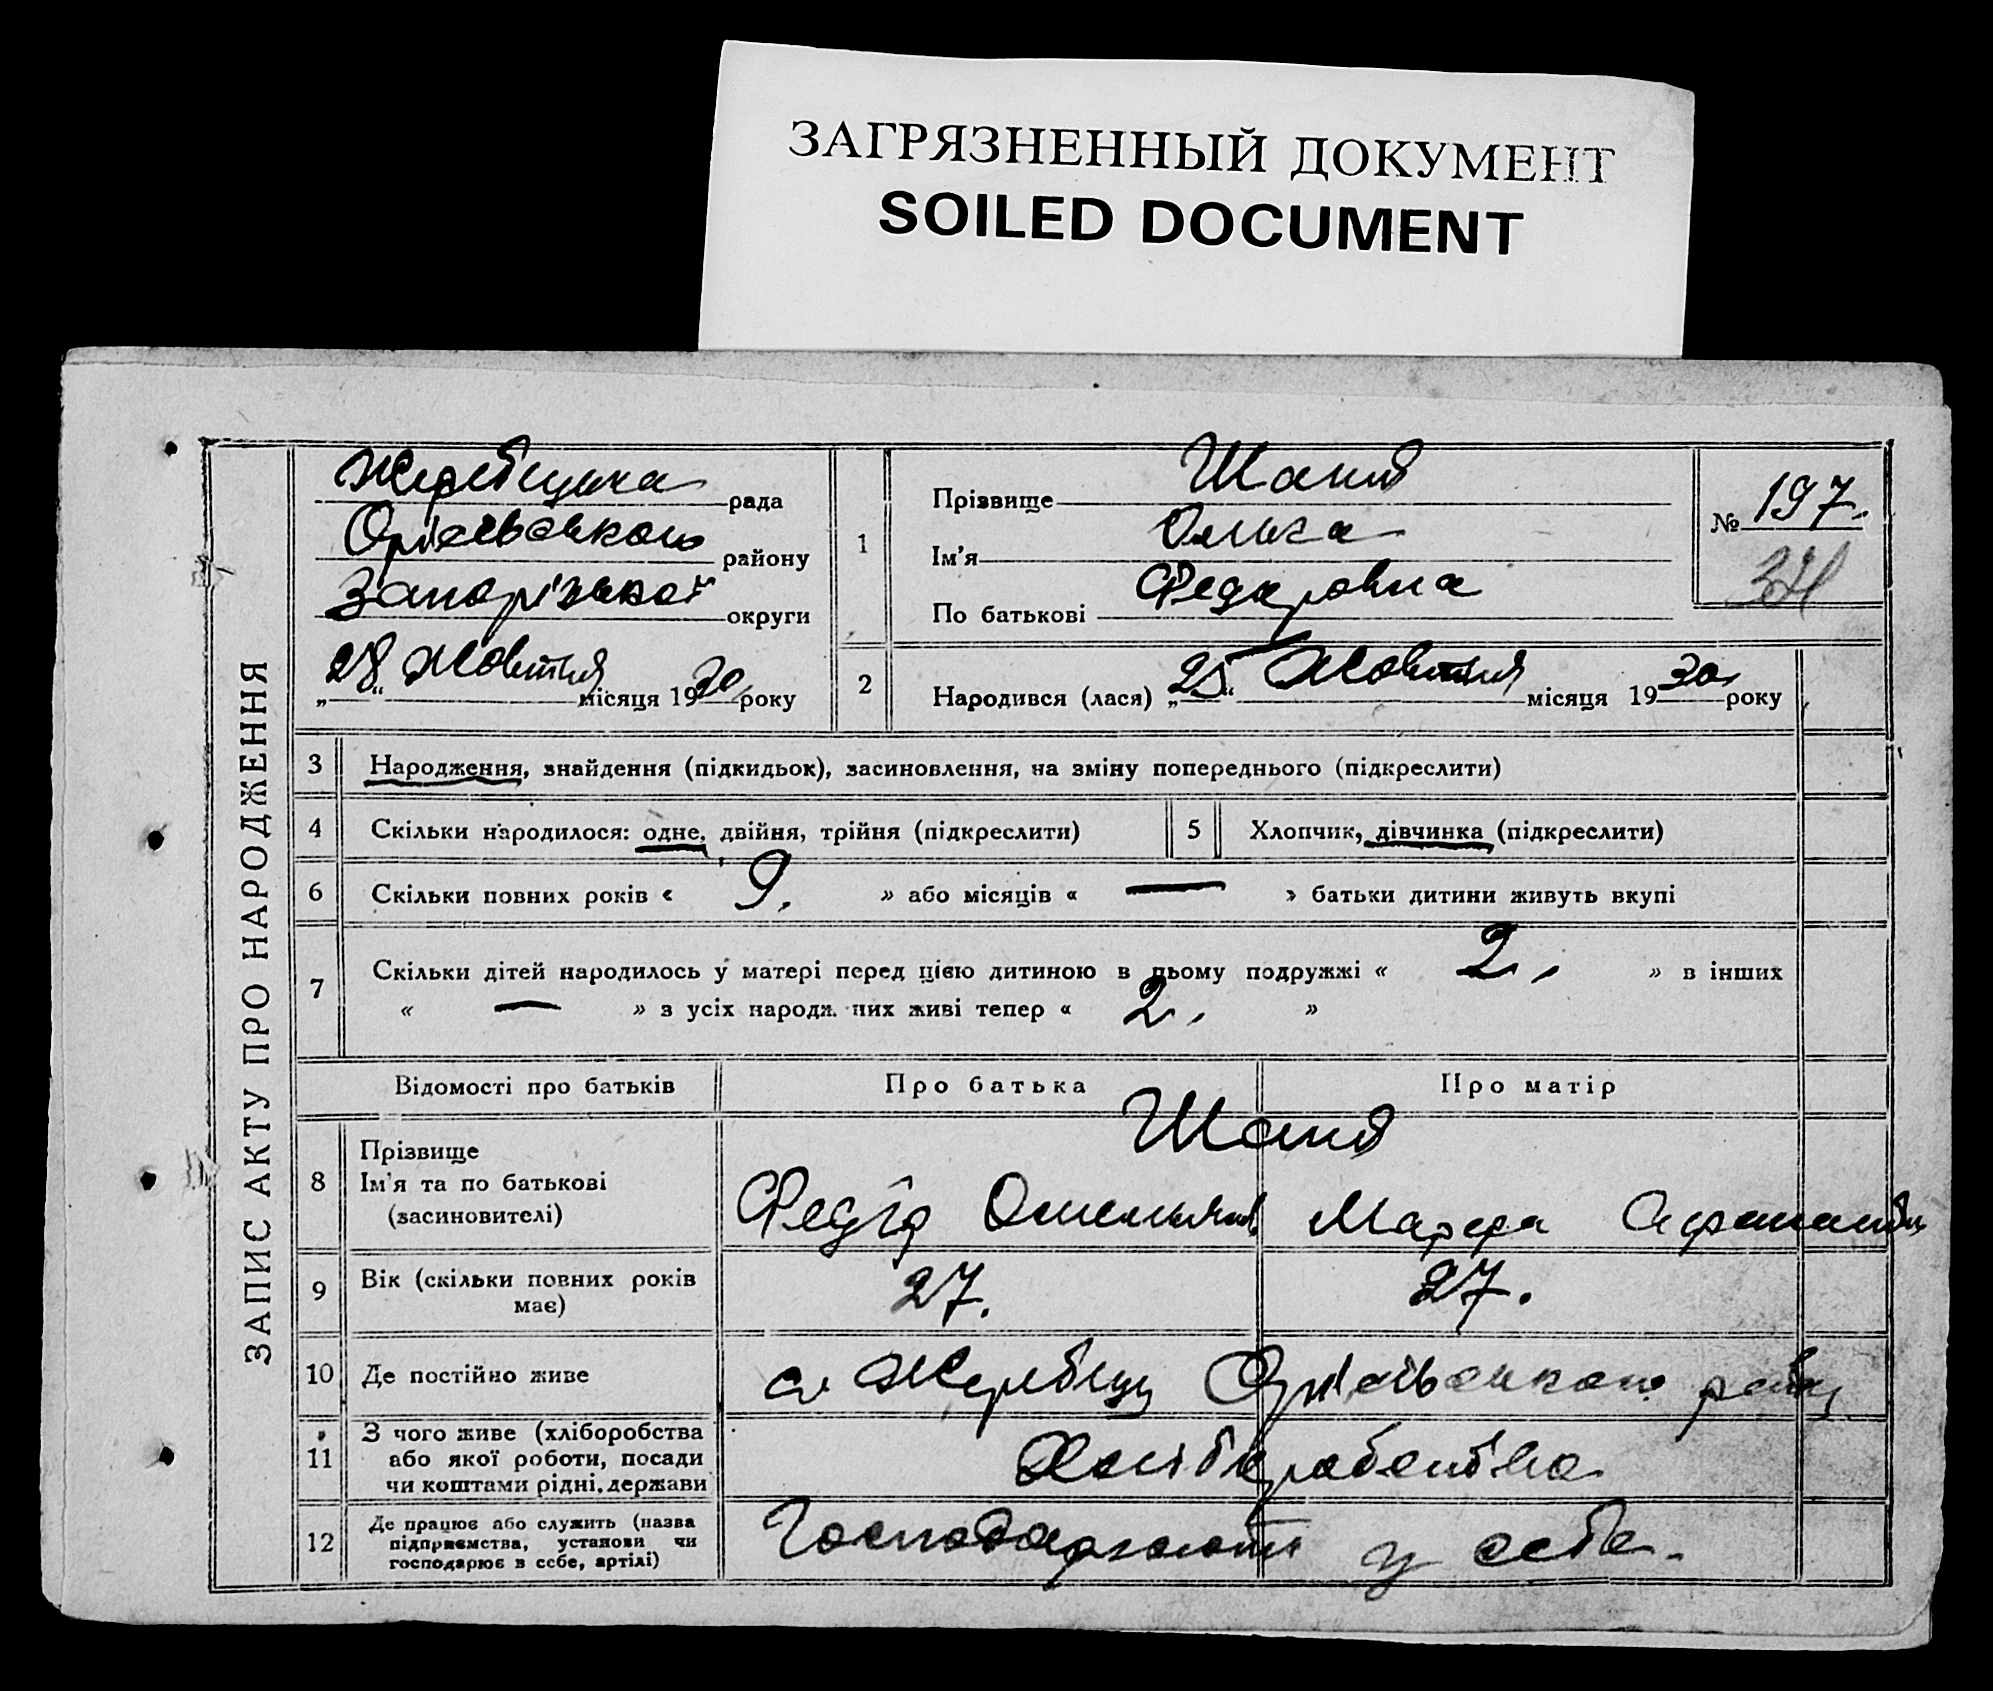 ЗАГРЯЗНЕННЫЙ ДОКУМЕНТ
SOILED DOCUMENT
ЗАПИС АКТУ ПРО НАРОДЖЕННЯ
Жеребецька рада
Оріхівського району
Запорізької округи
„28“ Жовтня місяця 1930 року
1
Прізвище
Ім’я Ольга
По батькові Федоровна
№ 197.
2
Народився (лася) „25“ Жовтня місяця 1930 року
3 Народження, знайдення (підкидьок), засиновлення, на зміну попереднього (підкреслити)
4 Скільки народилося: одне, двійня, трійня (підкреслити) 5 Хлопчик, дівчинка (підкреслити)
6 Скільки повних років « 9. » або місяців « — » батьки дитини живуть вкупі
7 Скільки дітей народилось у матері перед цією дитиною в цьому подружжі « 2. » в інших
« — » з усіх народж. них живі тепер « 2. »
Відомості про батьків Про батька Про матір
8 Прізвище
Ім’я та по батькові Федір Марфа
(засиновителі)
9 Вік (скільки повних років має) 27. 27.
10 Де постійно живе с. Жеребець Оріхівського району
11 З чого живе (хліборобства
або якої роботи, посади Хліборобства
чи коштами рідні, держави
12 Де працює або служить (назва
підприємства, установи чи Господарюють у себе.
господарює в себе, артілі)